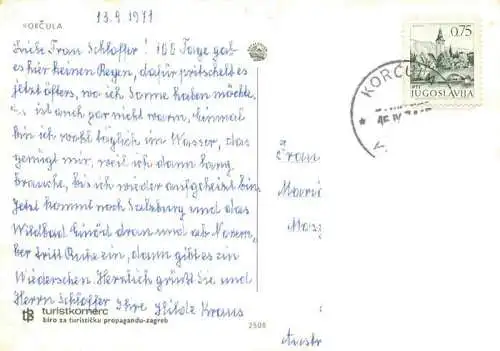 KORČULA
13.9.1971
Liebe Frau Schloffer! 100 Tage gab
es hier keinen Regen, dafür pritschelt es
jetzt öfters, wo ich Sonne haben möchte.
ist auch gar nicht warm. Einmal
bin ich wohl täglich im Wasser, das
genügt mir, weil ich dann lang
brauche, bis ich wieder aufgeheizt bin.
Jetzt kommt noch Salzburg und das
Wildbad Einöd dran und ab Novem-
ber tritt Ruhe ein, dann gibt es ein
Wiedersehen. Herzlich grüßt Sie und
Herrn Schloffer Ihre Hilde Kraus
turistkomerc
biro za turističku propagandu-zagreb
2508
0.75
JUGOSLAVIJA
KORČULA
Fran
Austr